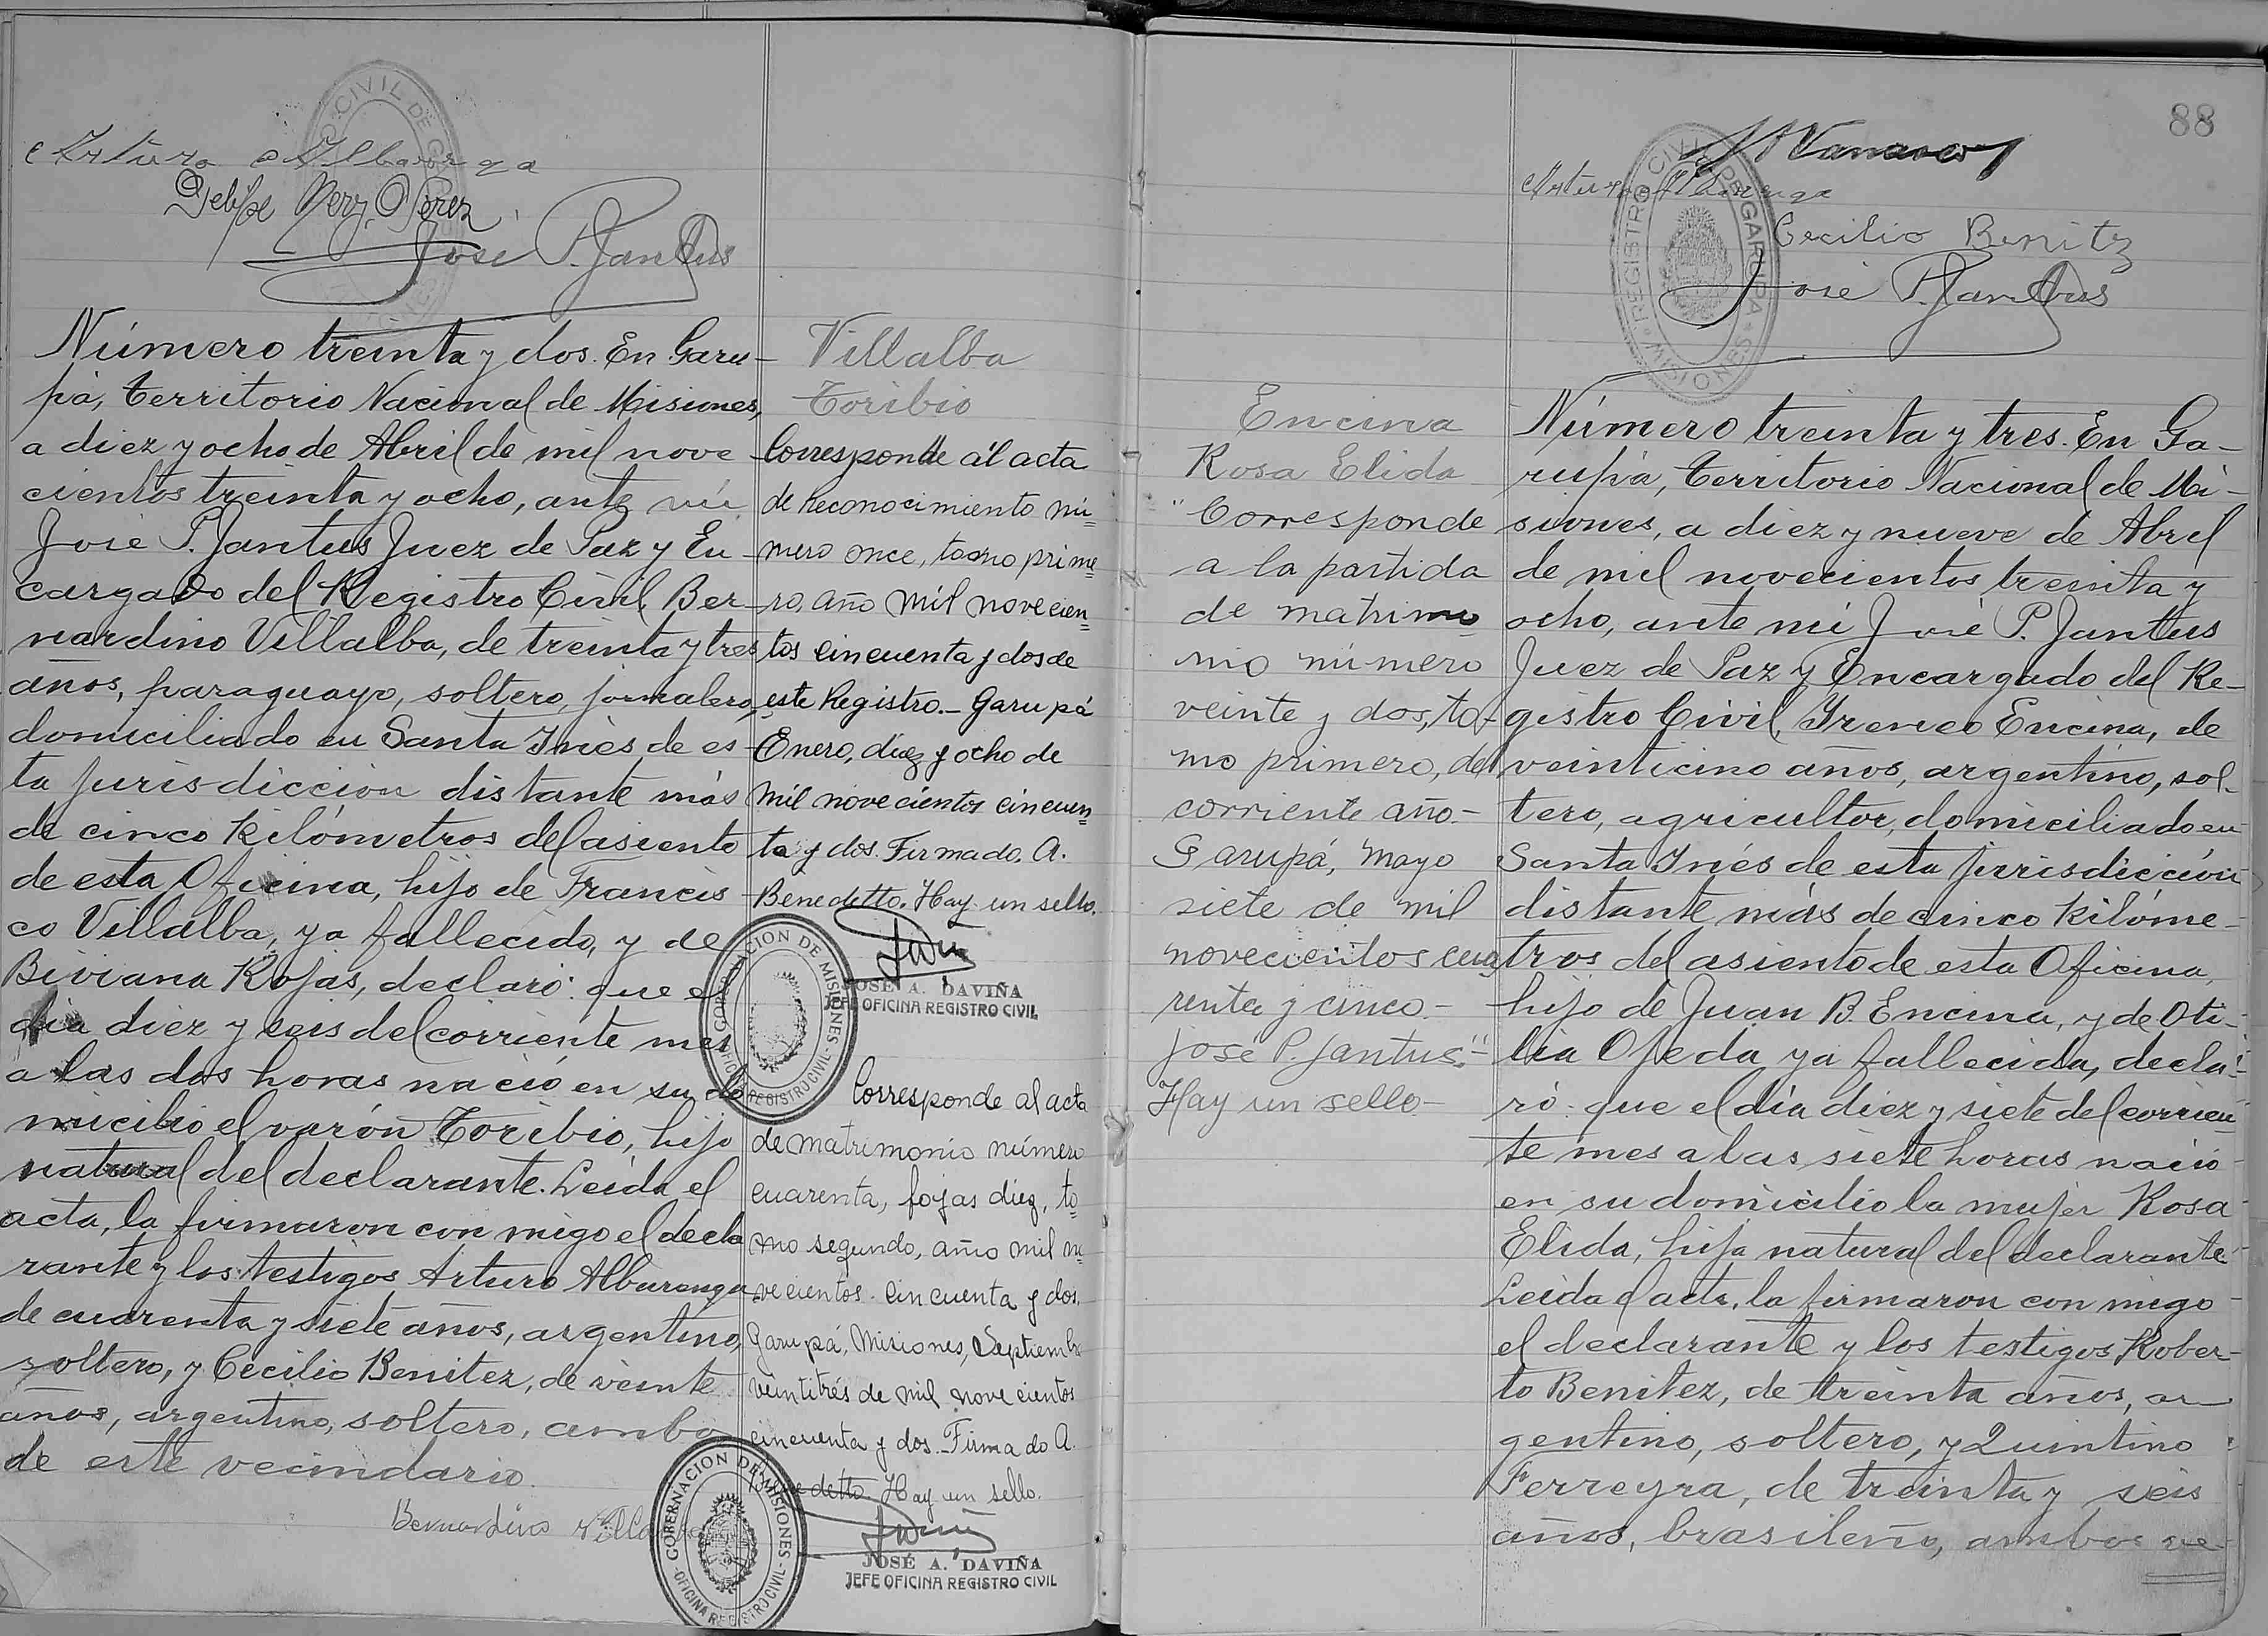 Arturo Alburenga
José P. Jantus
Número treinta y dos. En Garu-
pá, Territorio Nacional de Misiones,
a diez y ocho de Abril de mil nove-
cientos treinta y ocho, ante mí
José P. Jantus Juez de Paz y En-
cargado del Registro Civil, Ber-
nardino Villalba, de treinta y tres
años, paraguayo, soltero, jornalero,
domiciliado en Santa Inés de es-
ta jurisdicción distante más
de cinco kilómetros del asiento
de esta Oficina, hijo de Francis-
co Villalba, ya fallecido, y de
Biviana Rojas, declaró: que el
día diez y seis del corriente mes
a las dos horas nació en su do
micilio el varón Toribio, hijo
natural del declarante. Leída el
acta, la firmaron con migo el decla
rante y los testigos Arturo Alburenga
de cuarenta y siete años, argentino,
soltero, y Cecilio Benitez, de veinte
años, argentino, soltero, ambo
de este vecindario.
Bernardino Villalba
Villalba
Toribio
Corresponde al acta
de Reconocimiento nú=
mero once, tomo prime=
ro, año mil novecien=
tos cincuenta y dos de
este Registro.- Garupá
Enero, diez y ocho de
mil novecientos cincuen=
ta y dos. Firmado. A.
Benedetto. Hay un sello.
GOBERNACION DE MISIONES
OFICINA REGISTRO CIVIL
JOSÉ A. DAVIÑA
JEFE OFICINA REGISTRO CIVIL
Corresponde al acta
de matrimonio número
cuarenta, fojas diez, to=
mo segundo, año mil no
vecientos cincuenta y dos.
Garupá, Misiones, Septiembre
veintitrés de mil novecientos
cincuenta y dos.- Firmado A.
Benedetto. Hay un sello.
GOBERNACION DE MISIONES
OFICINA REGISTRO CIVIL
JOSÉ A. DAVIÑA
JEFE OFICINA REGISTRO CIVIL
88
REGISTRO CIVIL DE GARUPA
MISIONES
Cecilio Benitz
José P. Jantus
Encina
Rosa Elida
"Corresponde
a la partida
de matrimo
nio número
veinte y dos, to-
mo primero, del
corriente año.-
Garupá, Mayo
siete de mil
novecientos cua
renta y cinco.-
José P. Jantus."-
Hay un sello-
Número treinta y tres. En Ga-
rupá, Territorio Nacional de Mi-
siones, a diez y nueve de Abril
de mil novecientos treinta y
ocho, ante mí José P. Jantus
Juez de Paz y Encargado del Re-
gistro Civil, Ireneo Encina, de
veinticino años, argentino, sol-
tero, agricultor, domiciliado en
Santa Inés de esta jurisdicción
distante más de cinco kilóme-
tros del asiento de esta Oficina,
hijo de Juan B. Encina, y de Oti-
lia Ojeda ya fallecida, decla-
ró: que el día diez y siete del corrien
te mes a las siete horas nació
en su domicilio la mujer Rosa
Elida, hija natural del declarante
Leída el acta, la firmaron con migo
el declarante y los testigos Rober-
to Benitez, de treinta años, ar-
gentino, soltero, y Quintino
Ferreyra, de treinta y seis
años, brasileño, ambos ve-